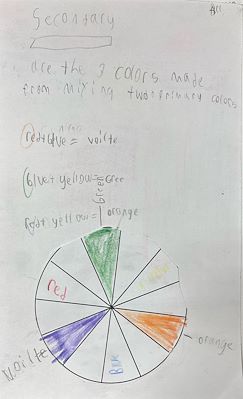 Secontary
are the 3 colors made
from mixing two primary colors
red+blue = voilte
blue+yellow=Gree
red+yellow=orange
Green
red
yellow
orange
Blue
voilte